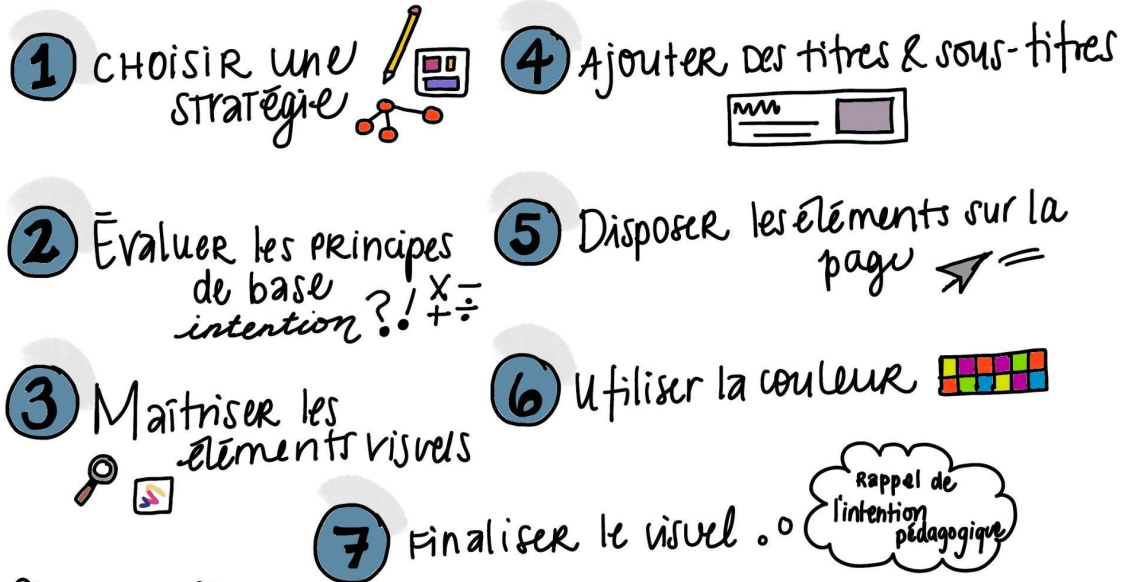 1 CHOISIR une
stratégie
2 Évaluer les principes
de base
intention ?! X - + ÷
3 Maîtriser les
éléments visuels
4 Ajouter des titres & sous-titres
5 Disposer les éléments sur la
page
6 Utiliser la couleur
7 Finaliser le visuel
Rappel de
l'intention
pédagogique